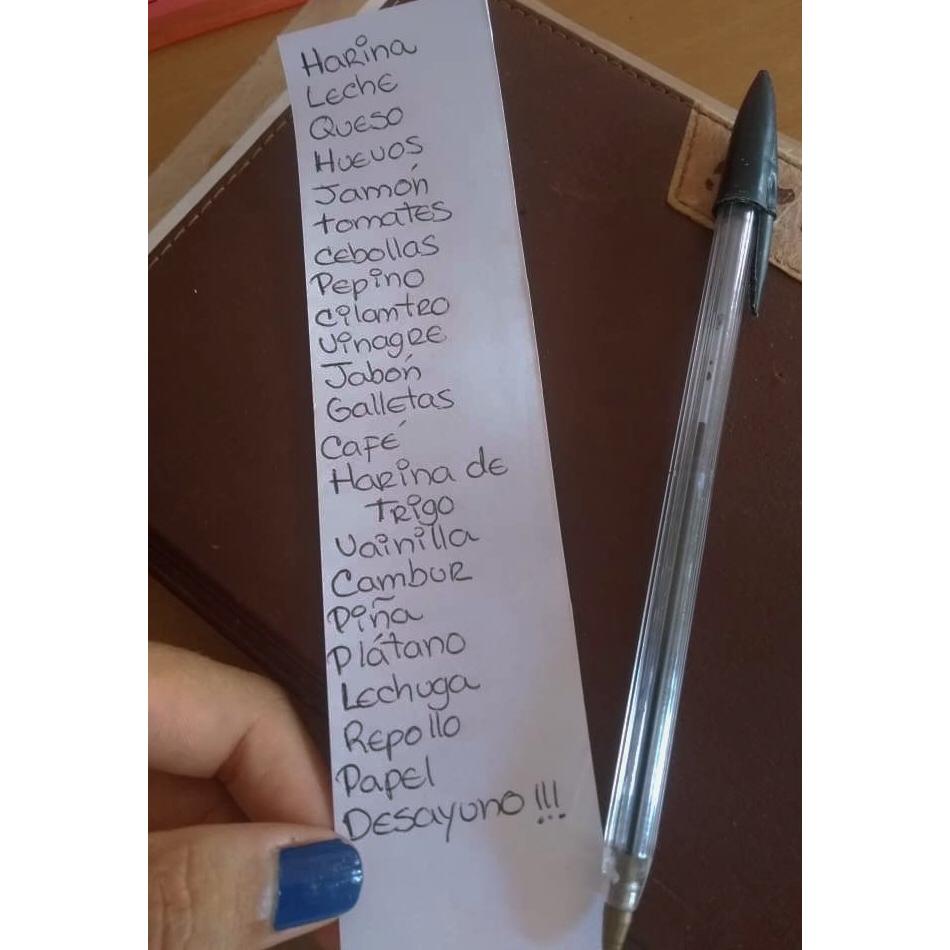 Harina
Leche
Queso
Huevos
Jamón
tomates
cebollas
Pepino
cilantro
Vinagre
Jabón
Galletas
Café
Harina de
Trigo
Vainilla
Cambur
Piña
Plátano
Lechuga
Repollo
Papel
Desayuno !!!